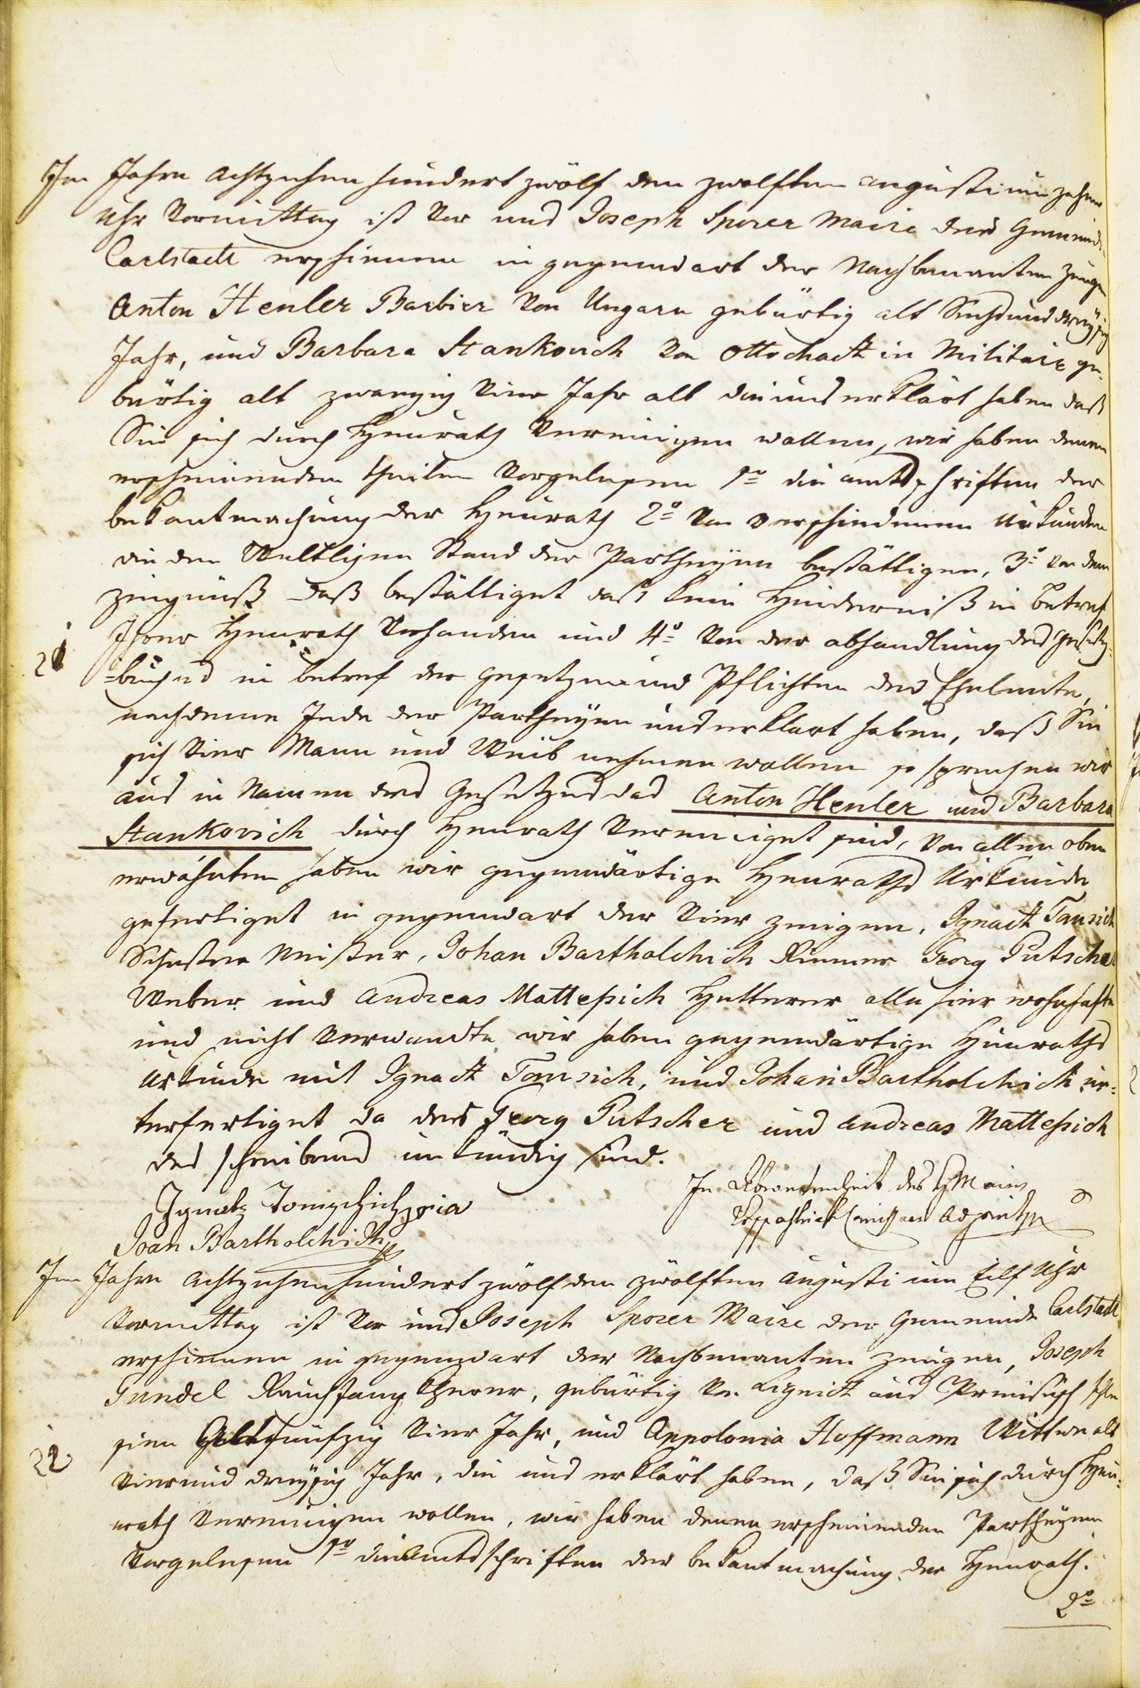 Im Jahre Achtzehen hundert zwölf den zwölften augusti um zehen
Uhr Vormittag ist Vor uns Joseph Sporer Maire der Gemeinde
Carlstadt erschienen in gegenwart der Nachbenanten Zeugen
Anton Henler Barbier Von Ungarn gebürtig alt Sechsunddreyßig
Jahr, und Barbara Stankovich Von Ottochacz in Militair ge-
bürtig alt zwanzig Vier Jahr alt die uns erklärt haben daß
Sie sich durch Heurath Vereinigen wollen, wir haben denen
erscheinenden theilen Vorgelesen 1o die amtsschriften der
bekantmachung der Heurath 2o Von Verschiedenen Urkunden
die den Weltlichen Stand der Partheyen bestättigen, 3o Von dem
Zeugniß daß bestättiget daß kein Hinderniß in betref
21
Ihrer Heurath Vorhanden und 4o Von der abhandlung des Gesetz-
buches in betref der gesetzen und Pflichten der Eheleute,
nachdeme Jede der Partheyen uns erklärt haben, daß Sie
sich Vier Mann und Weib nehmen wollen so sprechen wir
aus in Namen des Gesetzes das Anton Henler und Barbara
Stankovich durch Heurath Vereiniget sind, Von allen oben
erwähnten haben wir gegenwärtige Heuraths Urkunde
gefertiget in gegenwart der Vier Zeugen, Ignatz Tomsich
Schuster Meister, Johan Bartholchich Riemer Georg Putscher
Weber und Andreas Mattesich Hutterer alle hier wohnhafte
und nicht Verwandte wir haben gegenwärtige Heuraths
Urkunde mit Ignatz Tomsich, und Johan Bartholchich un-
terfertiget da der Georg Putscher und Andreas Mattesich
des schreibens unkündig sind.
Ignatz Tomschich
In Abwesenheit des H Maire
Joan Bartholchich
Adjoint
Im Jahre Achtzehenhundert zwölf den zwölften Augusti um Eilf Uhr
Vormittag ist Vor uns Joseph Sporer Maire der Gemeinde Carlstadt
erschienen in gegenwart der Nachbenanten Zeugen, Joseph
Fundel Rauchfang Kherer, gebürtig Von aus
22
fünfzig Vier Jahr, und Appolonia Hoffmann Wittwe alt
Vierund dreyßig Jahr, die uns erklärt haben, daß Sie sich durch Heu-
rath Vereinigen wollen, wir haben denen erscheinenden Partheyen
Vorgelesen 1o die Amtsschriften der bekantmachung der Heurath.
2o